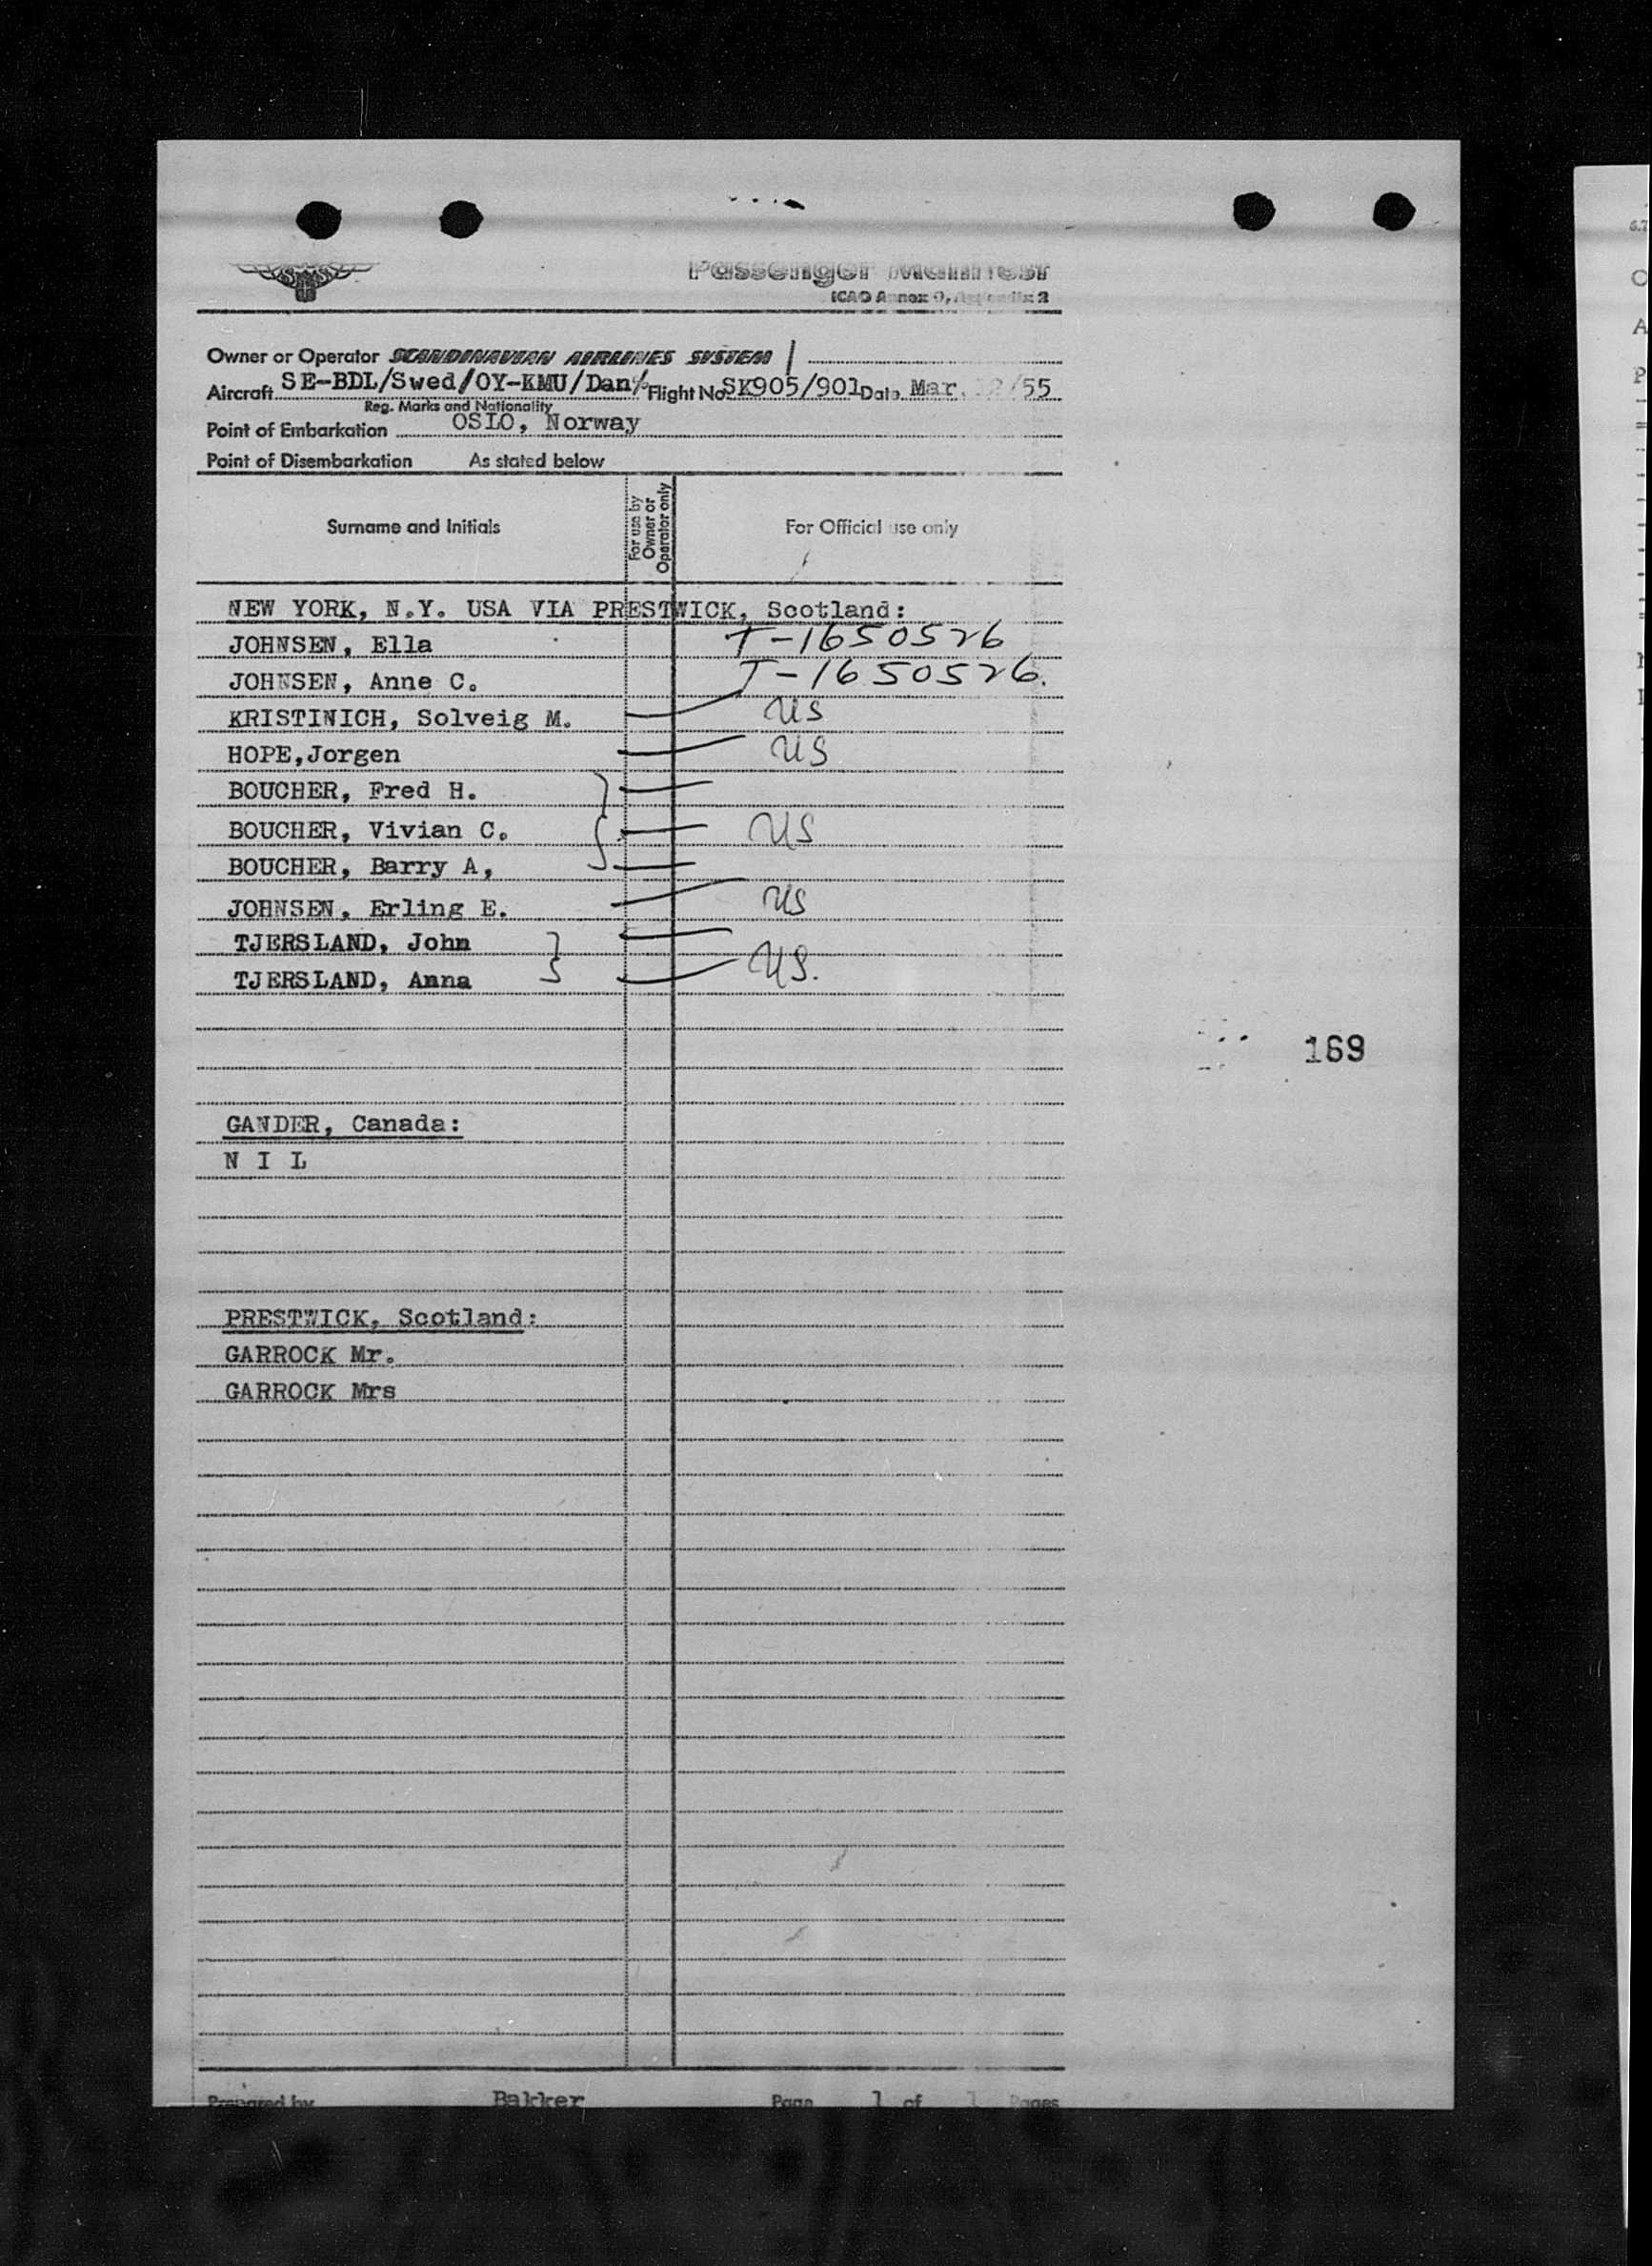 Passenger Manifest
ICAO Annex 9, Appendix 2
Owner or Operator SCANDINAVIAN AIRLINES SYSTEM
Aircraft SE-BDL/Swed/OY-KMU/Dan Flight No SK905/901 Date Mar. /55
Reg. Marks and Nationality
Point of Embarkation OSLO, Norway
Point of Disembarkation As stated below
Surname and Initials
For use by Owner or Operator only
For Official use only
NEW YORK, N.Y. USA VIA PRESTWICK, Scotland:
JOHNSEN, Ella T-1650526
JOHNSEN, Anne C. T-1650526.
KRISTINICH, Solveig M. US
HOPE,Jorgen US
BOUCHER, Fred H.
BOUCHER, Vivian C. US
BOUCHER, Barry A,
JOHNSEN, Erling E. US
TJERSLAND, John
TJERSLAND, Anna US.
169
GANDER, Canada:
N I L
PRESTWICK, Scotland:
GARROCK Mr.
GARROCK Mrs
Prepared by Bakker Page 1 of 1 Pages